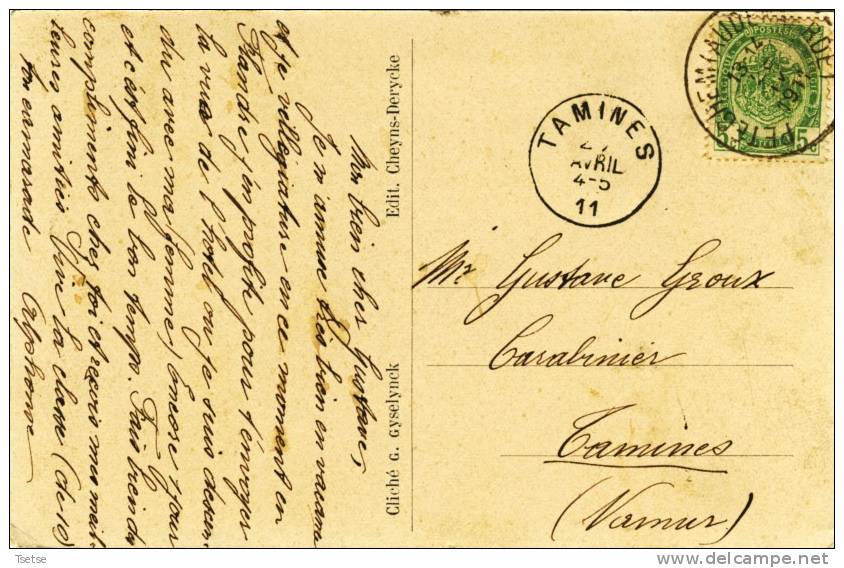 Mon bien cher Gustave,
Je m'amuse très bien en vacance
et je villegiature en ce moment en
Flandre j'en profite pour t'envoyer
la vue de l'hotel ou je suis descen
du avec ma femme, Encore 1 jour
et c'est fini le bon temps. Fais bien des
compliments chez toi et reçois mes meil-
leures amitiés Vive la classe (de 10)
Ton camarade Alphonse
Cliché G. Gyselynck Edit. Cheyns-Derycke
TAMINES
AVRIL
4-5
11
POSTES
5
Mr Gustave Groux
Carabinier
Tamines
(Namur)
Tsetse
www.delcampe.net